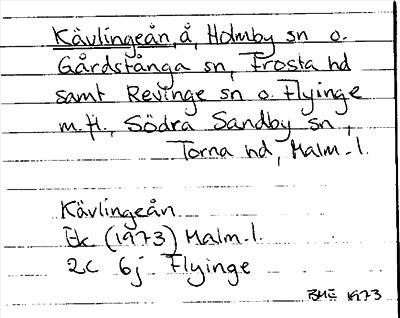 Kävlingeån, å, Holmby sn o.
Gårdstånga sn, Frosta hd
samt Revinge sn o. Flyinge
m. fl., Södra Sandby sn,
Torna hd, Malm. l.
Kävlingeån
Ek (1973) Malm. l.
2C 6j Flyinge
BME 1973